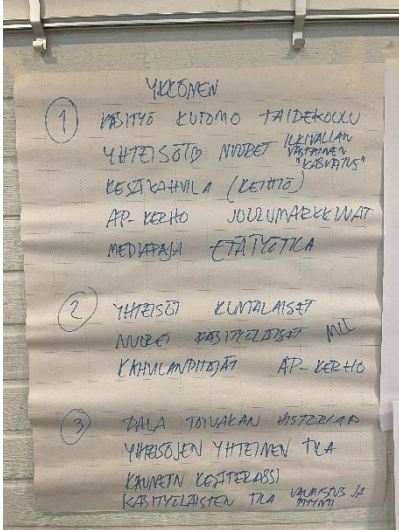 YKKÖNEN
1 KÄSITYÖ KUTOMO TAIDEKOULU
YHTEISÖT NUORET ILKIVALLAN VASTAINEN "KASVATUS"
KESÄKAHVILA (KEITTIÖ)
AP-KERHO JOULUMARKKINAT
MEDIAPAJA ETÄTYÖTILA
2 YHTEISÖT KUNTALAISET
NUORET KÄSITYÖLÄISET MLL
KAHVILANPITÄJÄT AP-KERHO
3 PALA TOIVAKAN HISTORIAA
YHTEISÖJEN YHTEINEN TILA
KAUNEIN KESÄTERASSI
KÄSITYÖLÄISTEN TILA VALMISTUS JA MYYNTI